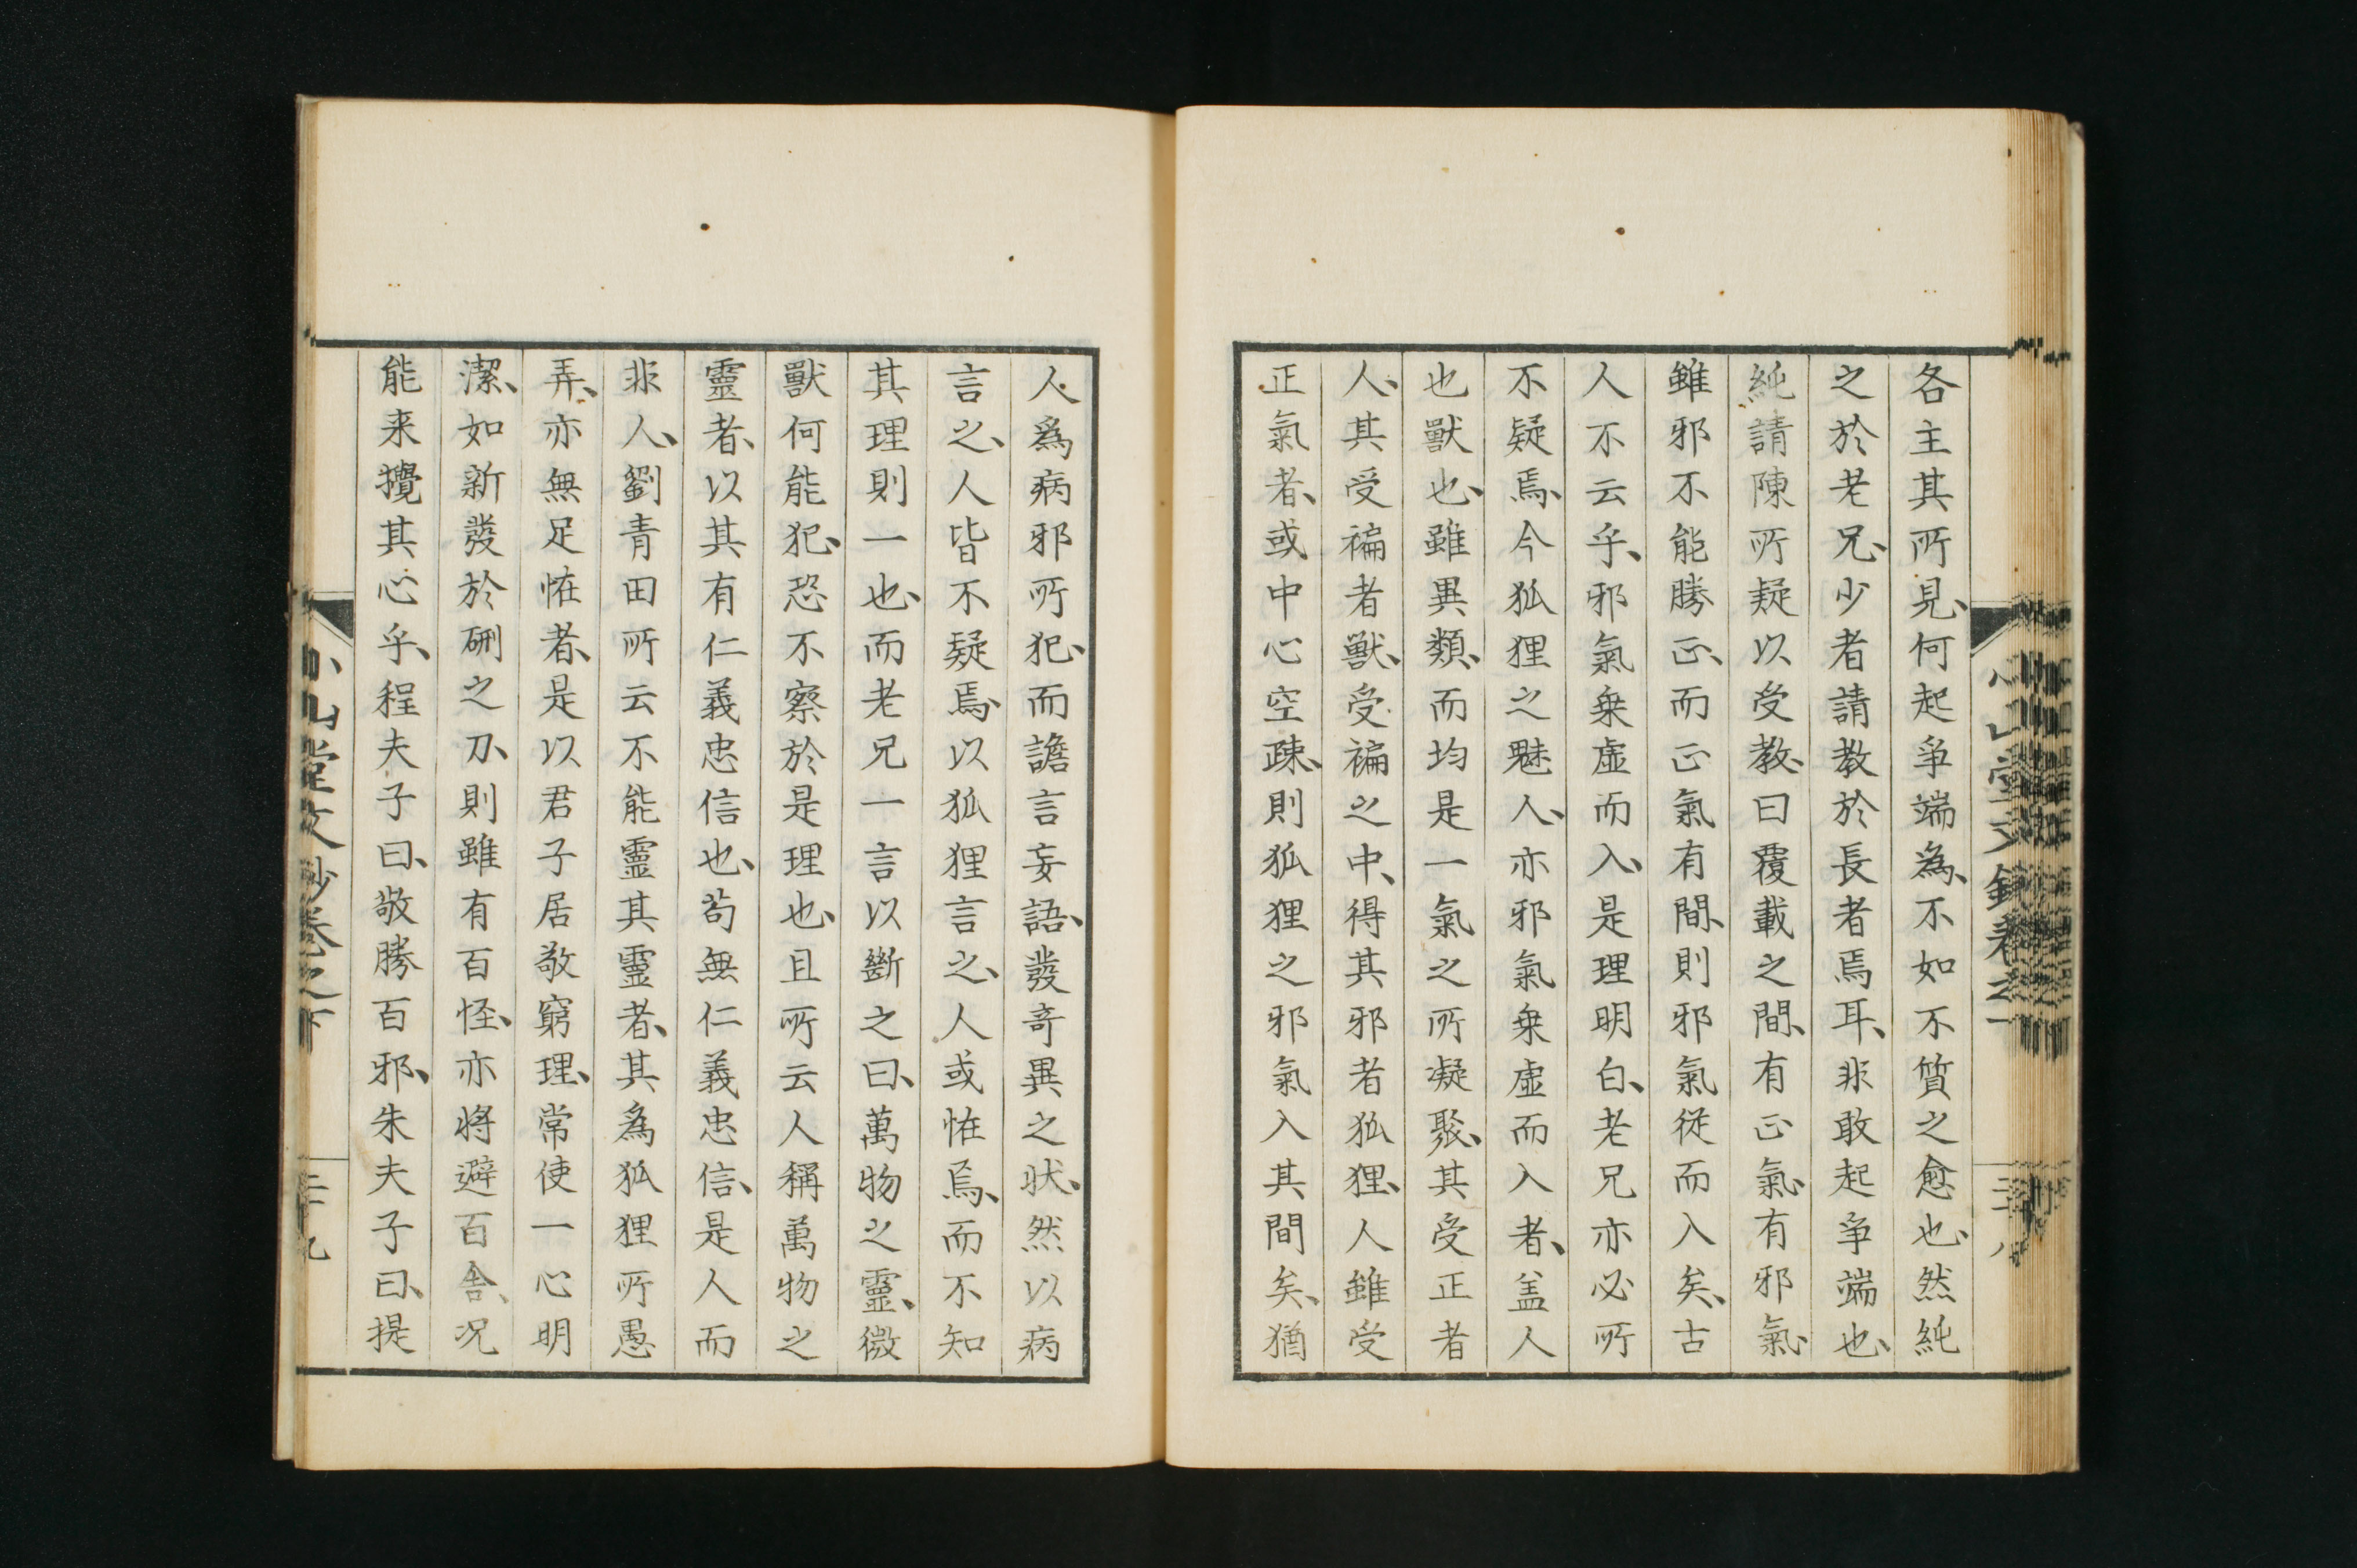 各主其所見、何起爭端為、不如不質之愈也、然純
之於老兄、少者請教於長者焉耳、非敢起爭端也、
純請陳所疑以受教、曰覆載之間、有正氣、有邪氣、
雖邪不能勝正、而正氣有間、則邪氣從而入矣、古
人不云乎、邪氣乗虛而入、是理明白、老兄亦必所
不疑焉、今狐狸之魅人、亦邪氣乗虛而入者、盖人
也獸也、雖異類、而均是一氣之所凝聚、其受正者
人、其受褊者獸、受褊之中、得其邪者狐狸、人雖受
正氣者、或中心空疎、則狐狸之邪氣入其間矣、猶
人為病邪所犯、而譫言妄語、發奇異之狀、然以病
言之、人皆不疑焉、以狐狸言之、人或恠焉、而不知
其理則一也、而老兄一言以斷之曰、萬物之靈、微
獸何能犯、恐不察於是理也、且所云人稱萬物之
靈者、以其有仁義忠信也、苟無仁義忠信、是人而
非人、劉青田所云不能靈其靈者、其為狐狸所愚
弄、亦無足恠者、是以君子居敬窮理、常使一心明
潔、如新發於硎之刀、則雖有百怪、亦將避百舎、况
能来攪其心乎、程夫子曰、敬勝百邪、朱夫子曰、提
小山堂文鈔卷之下
三十九